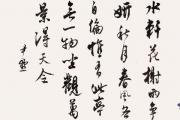 水軒花榭兩爭
妍秋月春風各
自偏惟有此亭
無一物坐觀萬
景得天全